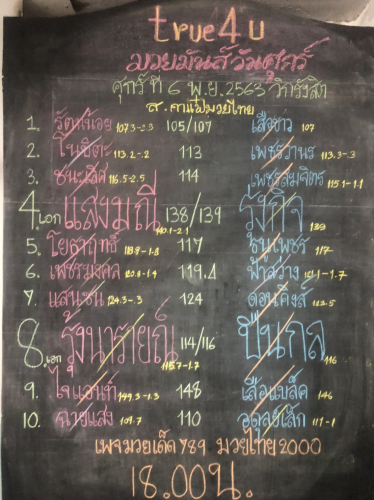 true4u
มวยมันส์วันศุกร์
ศุกร์ที่ 6 พ.ย. 2563 วิกรังสิต
ส.สามโฟมวยไทย
1. รัตน์น้อย 107.3-2.3 105/107 เสือขาว 107
2. โนบิตะ 113.2-.2 113 เพชรวานร 113.3-.3
3. ชนะเลิศ 116.5-2.5 114 เพชรสมจิตร 115.1-1.1
4. เอก แสงมณี 140.1-2.1 138/139 รุ่งกิจ 139
5. โยธาฤทธิ์ 118.8-1.8 117 ธนูเพชร 117
6. เพชรมงคล 120.8-1.4 119.4 ฟ้าสว่าง 121.1-1.7
7. แสนชน 124.3-.3 124 ดอนคิงส์ 122.5
8. เอก รุ่งนารายณ์ 115.7-1.7 114/116 ปืนกล 116
9. 149.3-1.3 148 เสือแบล็ค 146
10. ฉายแสง 109.7 110 อดุลย์เล็ก 111-1
เพจมวยเด็ด 789 มวยไทย 2000
18.00น.